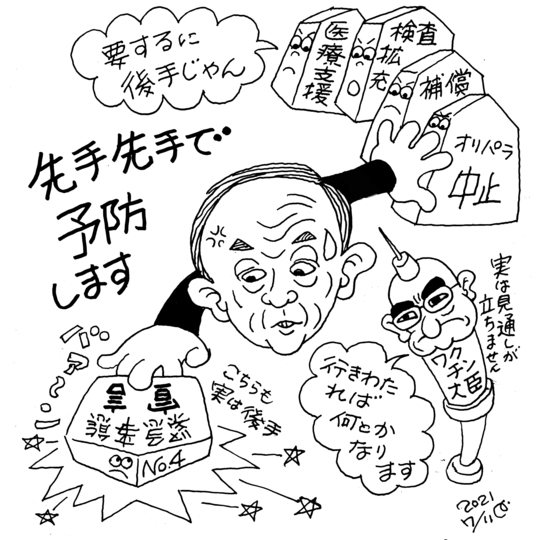 要するに
後手じゃん
医療支援
検査
拡充
補償
オリパラ
中止
先手先手で
予防
します
実は見通しが
立ちません
ワク
チン
大臣
行きわた
れば
何とか
なり
ます
こちらも
実は後手
緊急事態
宣言
No.4
2021
7/11